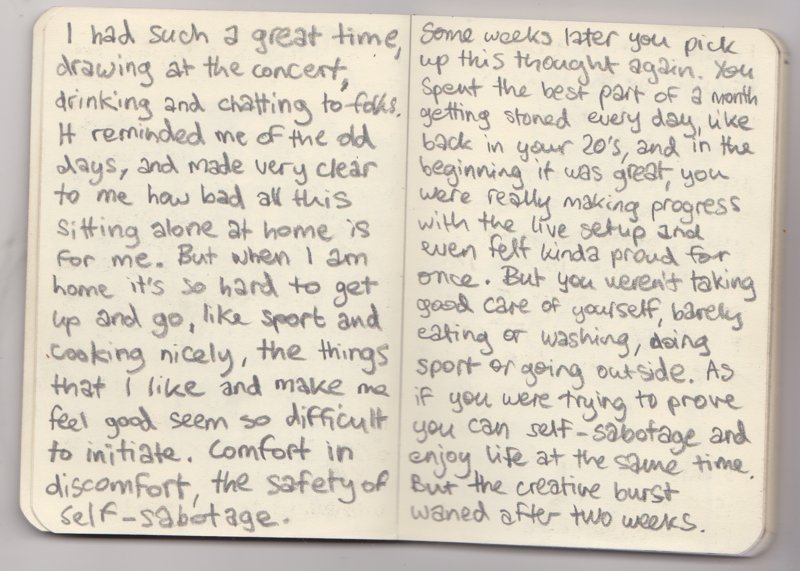 I had such a great time,
drawing at the concert,
drinking and chatting to folks.
It reminded me of the old
days, and made very clear
to me how bad all this
sitting alone at home is
for me. But when I am
home it's so hard to get
up and go, like sport and
cooking nicely, the things
that I like and make me
feel good seem so difficult
to initiate. Comfort in
discomfort, the safety of
self-sabotage.
Some weeks later you pick
up this thought again. You
spent the best part of a month
getting stoned every day, like
back in your 20's, and in the
beginning it was great, you
were really making progress
with the live setup and
even felt kinda proud for
once. But you weren't taking
good care of yourself, barely
eating or washing, doing
sport or going outside. As
if you were trying to prove
you can self-sabotage and
enjoy life at the same time.
But the creative burst
waned after two weeks.